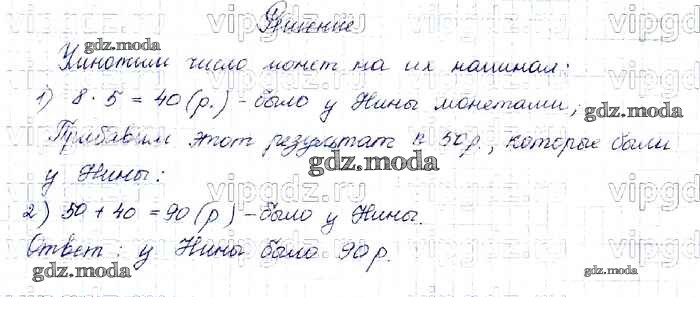 Решение
Умножим число монет на их наминал:
1) 8 · 5 = 40 (р.) - было у Нины монетами;
Прибавим этот результат к 50р., которые были
у Нины:
2) 50 + 40 = 90 (р) - было у Нины.
Ответ: у Нины было 90 р.
gdz.moda
gdz.moda
gdz.moda
gdz.moda
gdz.moda
gdz.moda
vipgdz.ru
vipgdz.ru
vipgdz.ru